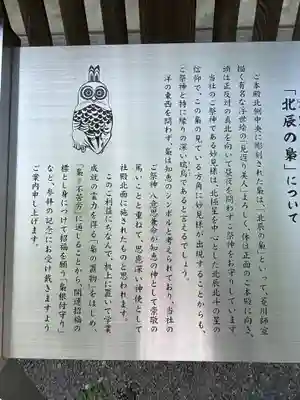 「北辰の梟」について
ご本殿北側中央に彫刻された梟は、「北辰の梟」といって、菱川師宣
描く有名な浮世絵の「見返り美人」よろしく、体は正面のご本殿に向き、
頭は正反対の真北を向いて昼夜を問わずご祭神をお守りしています。
当社のご祭神である妙見様は、北極星を中心とした北辰北斗の星の
信仰で、この梟の見ている方角に妙見様が出現することからも、
ご祭神と特に縁りの深い瑞鳥であると言えるでしょう。
洋の東西を問わず、梟は知恵のシンボルと考えられており、当社の
ご祭神八意思兼命が知恵の神として崇敬の
篤いことと重ねて、思慮深い神使として
社殿北面に施されたものと思われます。
このご利益にちなんで、机上に置いて学業
成就の霊力を得る「梟の置物」をはじめ、
「梟(不苦労)」に通じることから、開運招福の
標として身につけて招福を願う「梟根付守り」
など、参拝の記念にお受け戴きますよう
ご案内申し上げます。